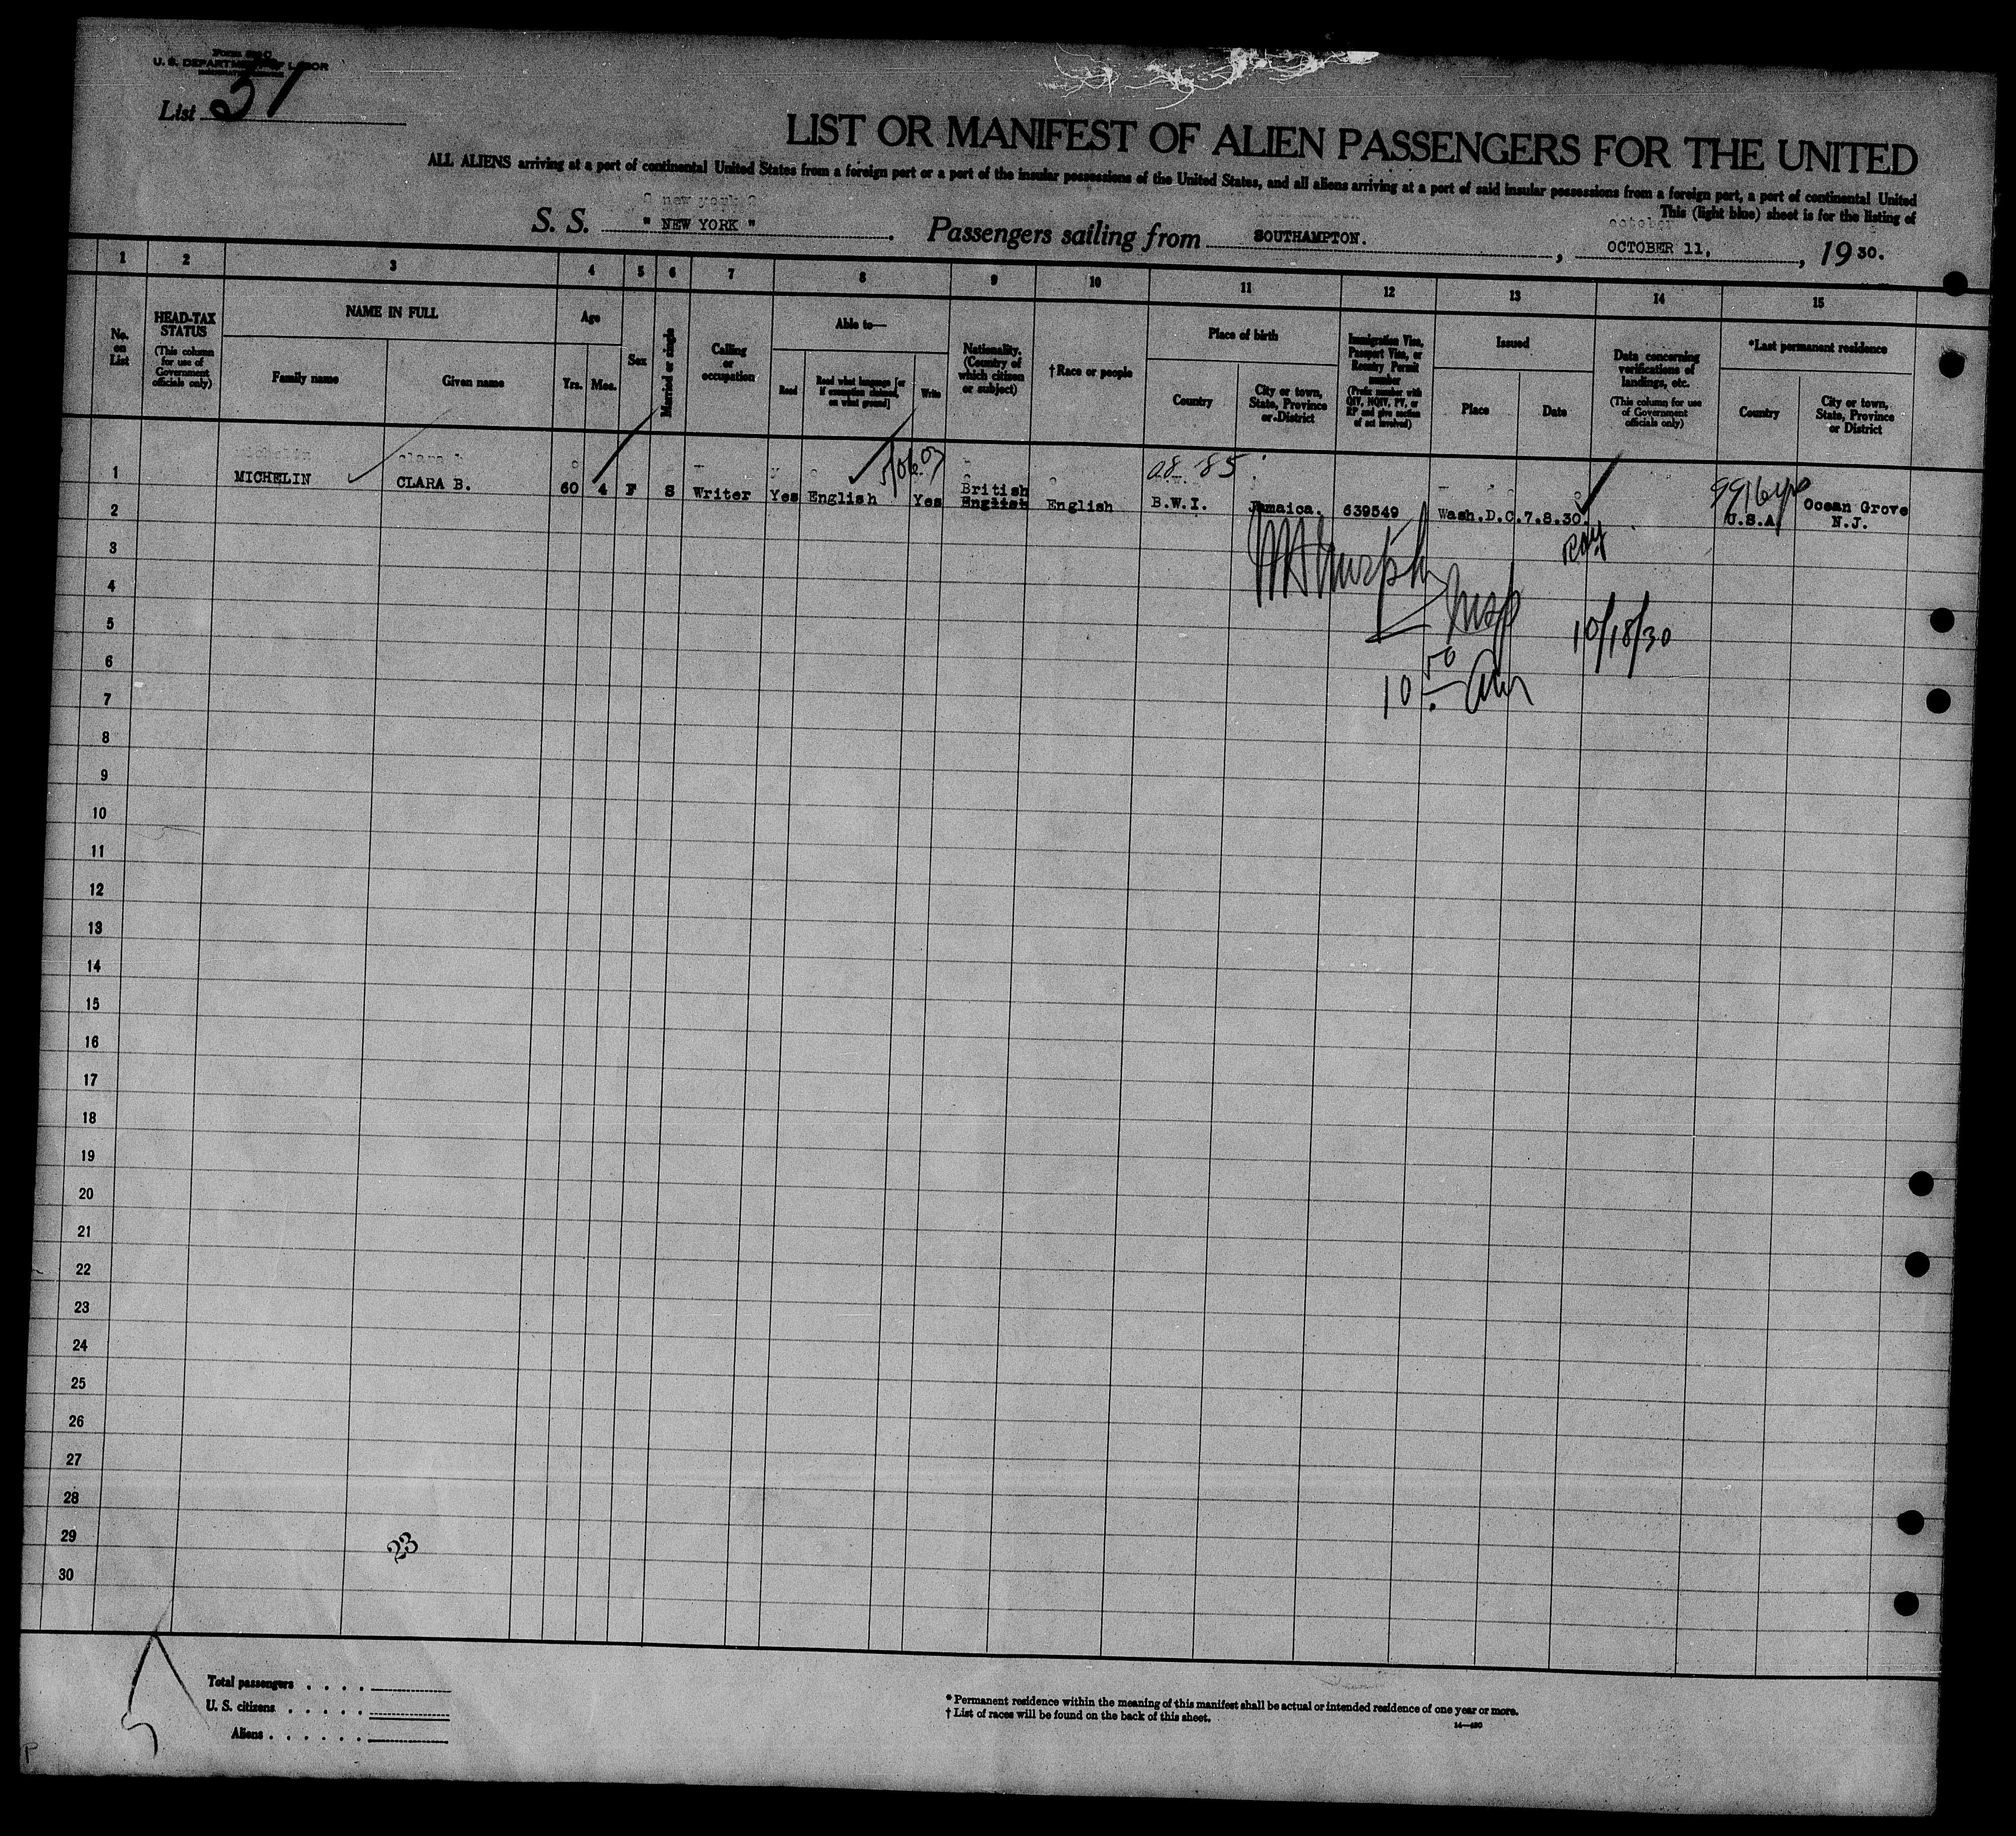 U. S. DEPARTMENT OF LABOR
List 31
LIST OR MANIFEST OF ALIEN PASSENGERS FOR THE UNITED
ALL ALIENS arriving at a port of continental United States from a foreign port or a port of the insular possessions of the United States, and all aliens arriving at a port of said insular possessions from a foreign port, a port of continental United
This (light blue) sheet is for the listing of
S. S. " NEW YORK " . Passengers sailing from SOUTHAMPTON. , OCTOBER 11, , 19 30.
1 2 3 4 5 6 7 8 9 10 11 12 13 14 15
No. on List
HEAD-TAX STATUS (This column for use of Government officials only)
NAME IN FULL
Family name
Given name
Age
Yrs. Mos.
Sex
Married or single
Calling or occupation
Able to—
Read
Read what language [or if exemption claimed, on what ground]
Write
Nationality. (Country of which citizen or subject)
†Race or people
Place of birth
Country
City or town, State, Province or District
Immigration Visa, Passport Visa, or Reentry Permit number (Prefix number with QIV, NQIV, PV, or RP and give section of act involved)
Issued
Place
Date
Data concerning verifications of landings, etc. (This column for use of Government officials only)
*Last permanent residence
Country
City or town, State, Province or District
1 MICHELIN CLARA B. 60 4 F S Writer Yes English Yes British English English B.W.I. Jamaica. 639549 Wash.D.C. 7.8.30. U.S.A. Ocean Grove N.J.
2
3
4
5 Insp 10/18/30
6
7 10 50 am
8
9
10
11
12
13
14
15
16
17
18
19
20
21
22
23
24
25
26
27
28
29 23
30
Total passengers . . . .
U. S. citizens . . . . .
Aliens . . . . . .
* Permanent residence within the meaning of this manifest shall be actual or intended residence of one year or more.
† List of races will be found on the back of this sheet.
P